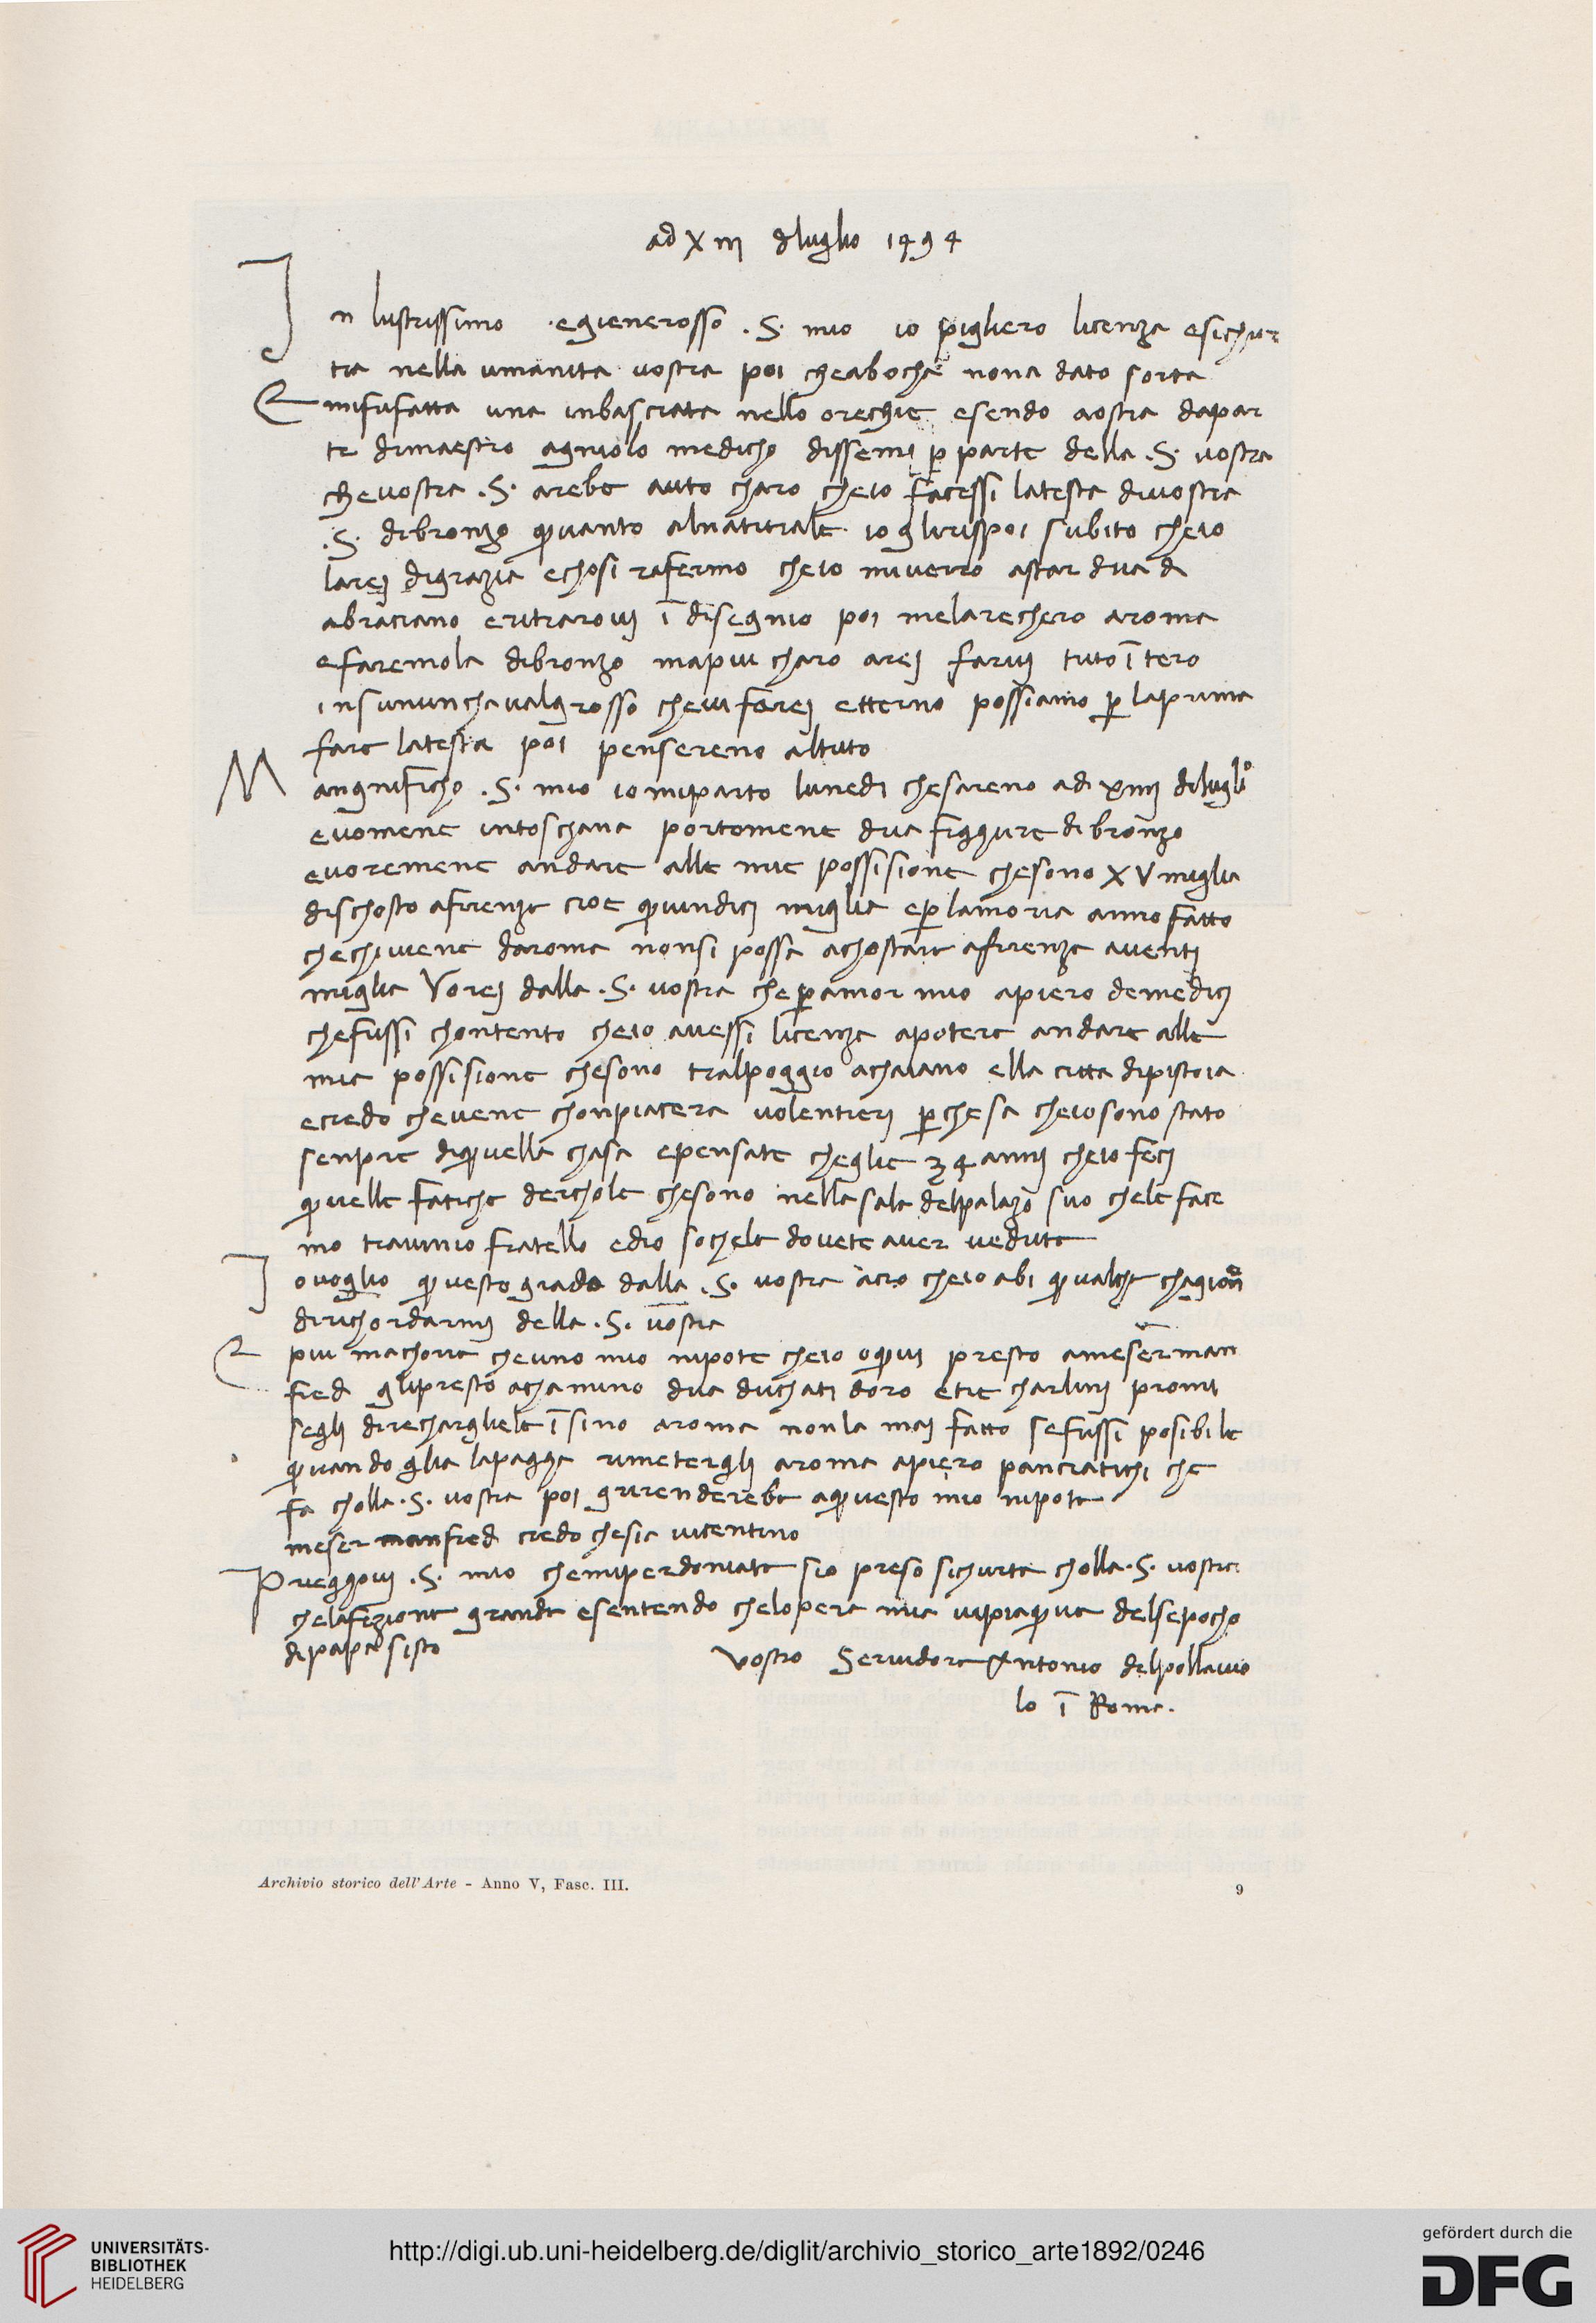 ad XIII d luglio 1494
In lustrissimo · e gienerosso . S. mio io pigliero licenza e sichur
tra nella umanita vostra poi che a bocha non a dato sorta
E mi fu fatta una inbasciata nello orechie esendo a ostra da par
te di maestro agniolo medicho dissemi p parte della . S. vostra
che vostra . S. arebe auto charo che io facessi la testa di vostra
. S. di bronzo quanto al naturale io gli rispoi subito che io
larej di grazia e chosi rafermo che io mi verro a star dua dì
a braciano e ritrarovj ī disegnio poi me la rechero a roma
e faremola di bronzo ma piu charo arej farvj tuto ītero
in sun un chaval grosso che vi farej etterno possiamo p la prima
fare la testa poi penserēno al tuto
Mangnificho . S. mio io mi parto lunedi che sareno adi XIIIJ di luglio
e vomene in toschana portomene dua figgure di bronzo
e voremene andare alle mie possisione che sono XV miglia
dischosto a firenze cioe quindicj miglia e p la moria anno fatto
che chi viene da roma non si possa achostare a firenze a ventj
miglia Vorej dalla . S. vostra che p amor mio a piero de medicj
che fussi chontento che io avessi licenza a potere andare alle
mie possisione che sono tral poggio a chaiano e lla citta di pistoia
e credo che ve ne chonpiacera volentierj p che sa che io sono stato
senpre di quella chasa e pensate che glie 34 annj che io fecj
quelle fatiche derchole che sono nella sala del palazo suo che le face
mo tra un mio fratello ed io so che le dovete aver vedute
Io voglio questo grado dalla . S. vostra acio che io abi qualche chagione
di richordarmj della . S. vostra
E piu m achorre che uno mio nipote che io o quj presto a meser man
fred gli presto a chamino dua duchati doro e tre charlinj promi
seglj di rechargliele ī sino a roma non la maj fatto se fussi posibile
quando glia la pagga rimeterglj a roma a piero panciatichi che
fa cholla . S. vostra poi gri renderebe a questo mio nipote
meser manfred credo che sie vicentino
Prieggovj . S. mio che mi perdoniate sio preso sichurta cholla . S. vostra
che lafizione grande e sentendo che lopera mia vi piaque del sepocho
di papa sisto
Vostro Servidore Antonio del pollaiuo
lo ī Roma .
Archivio storico dell'Arte - Anno V, Fasc. III.
9
UNIVERSITÄTS-
BIBLIOTHEK
HEIDELBERG
http://digi.ub.uni-heidelberg.de/diglit/archivio_storico_arte1892/0246
gefördert durch die
DFG